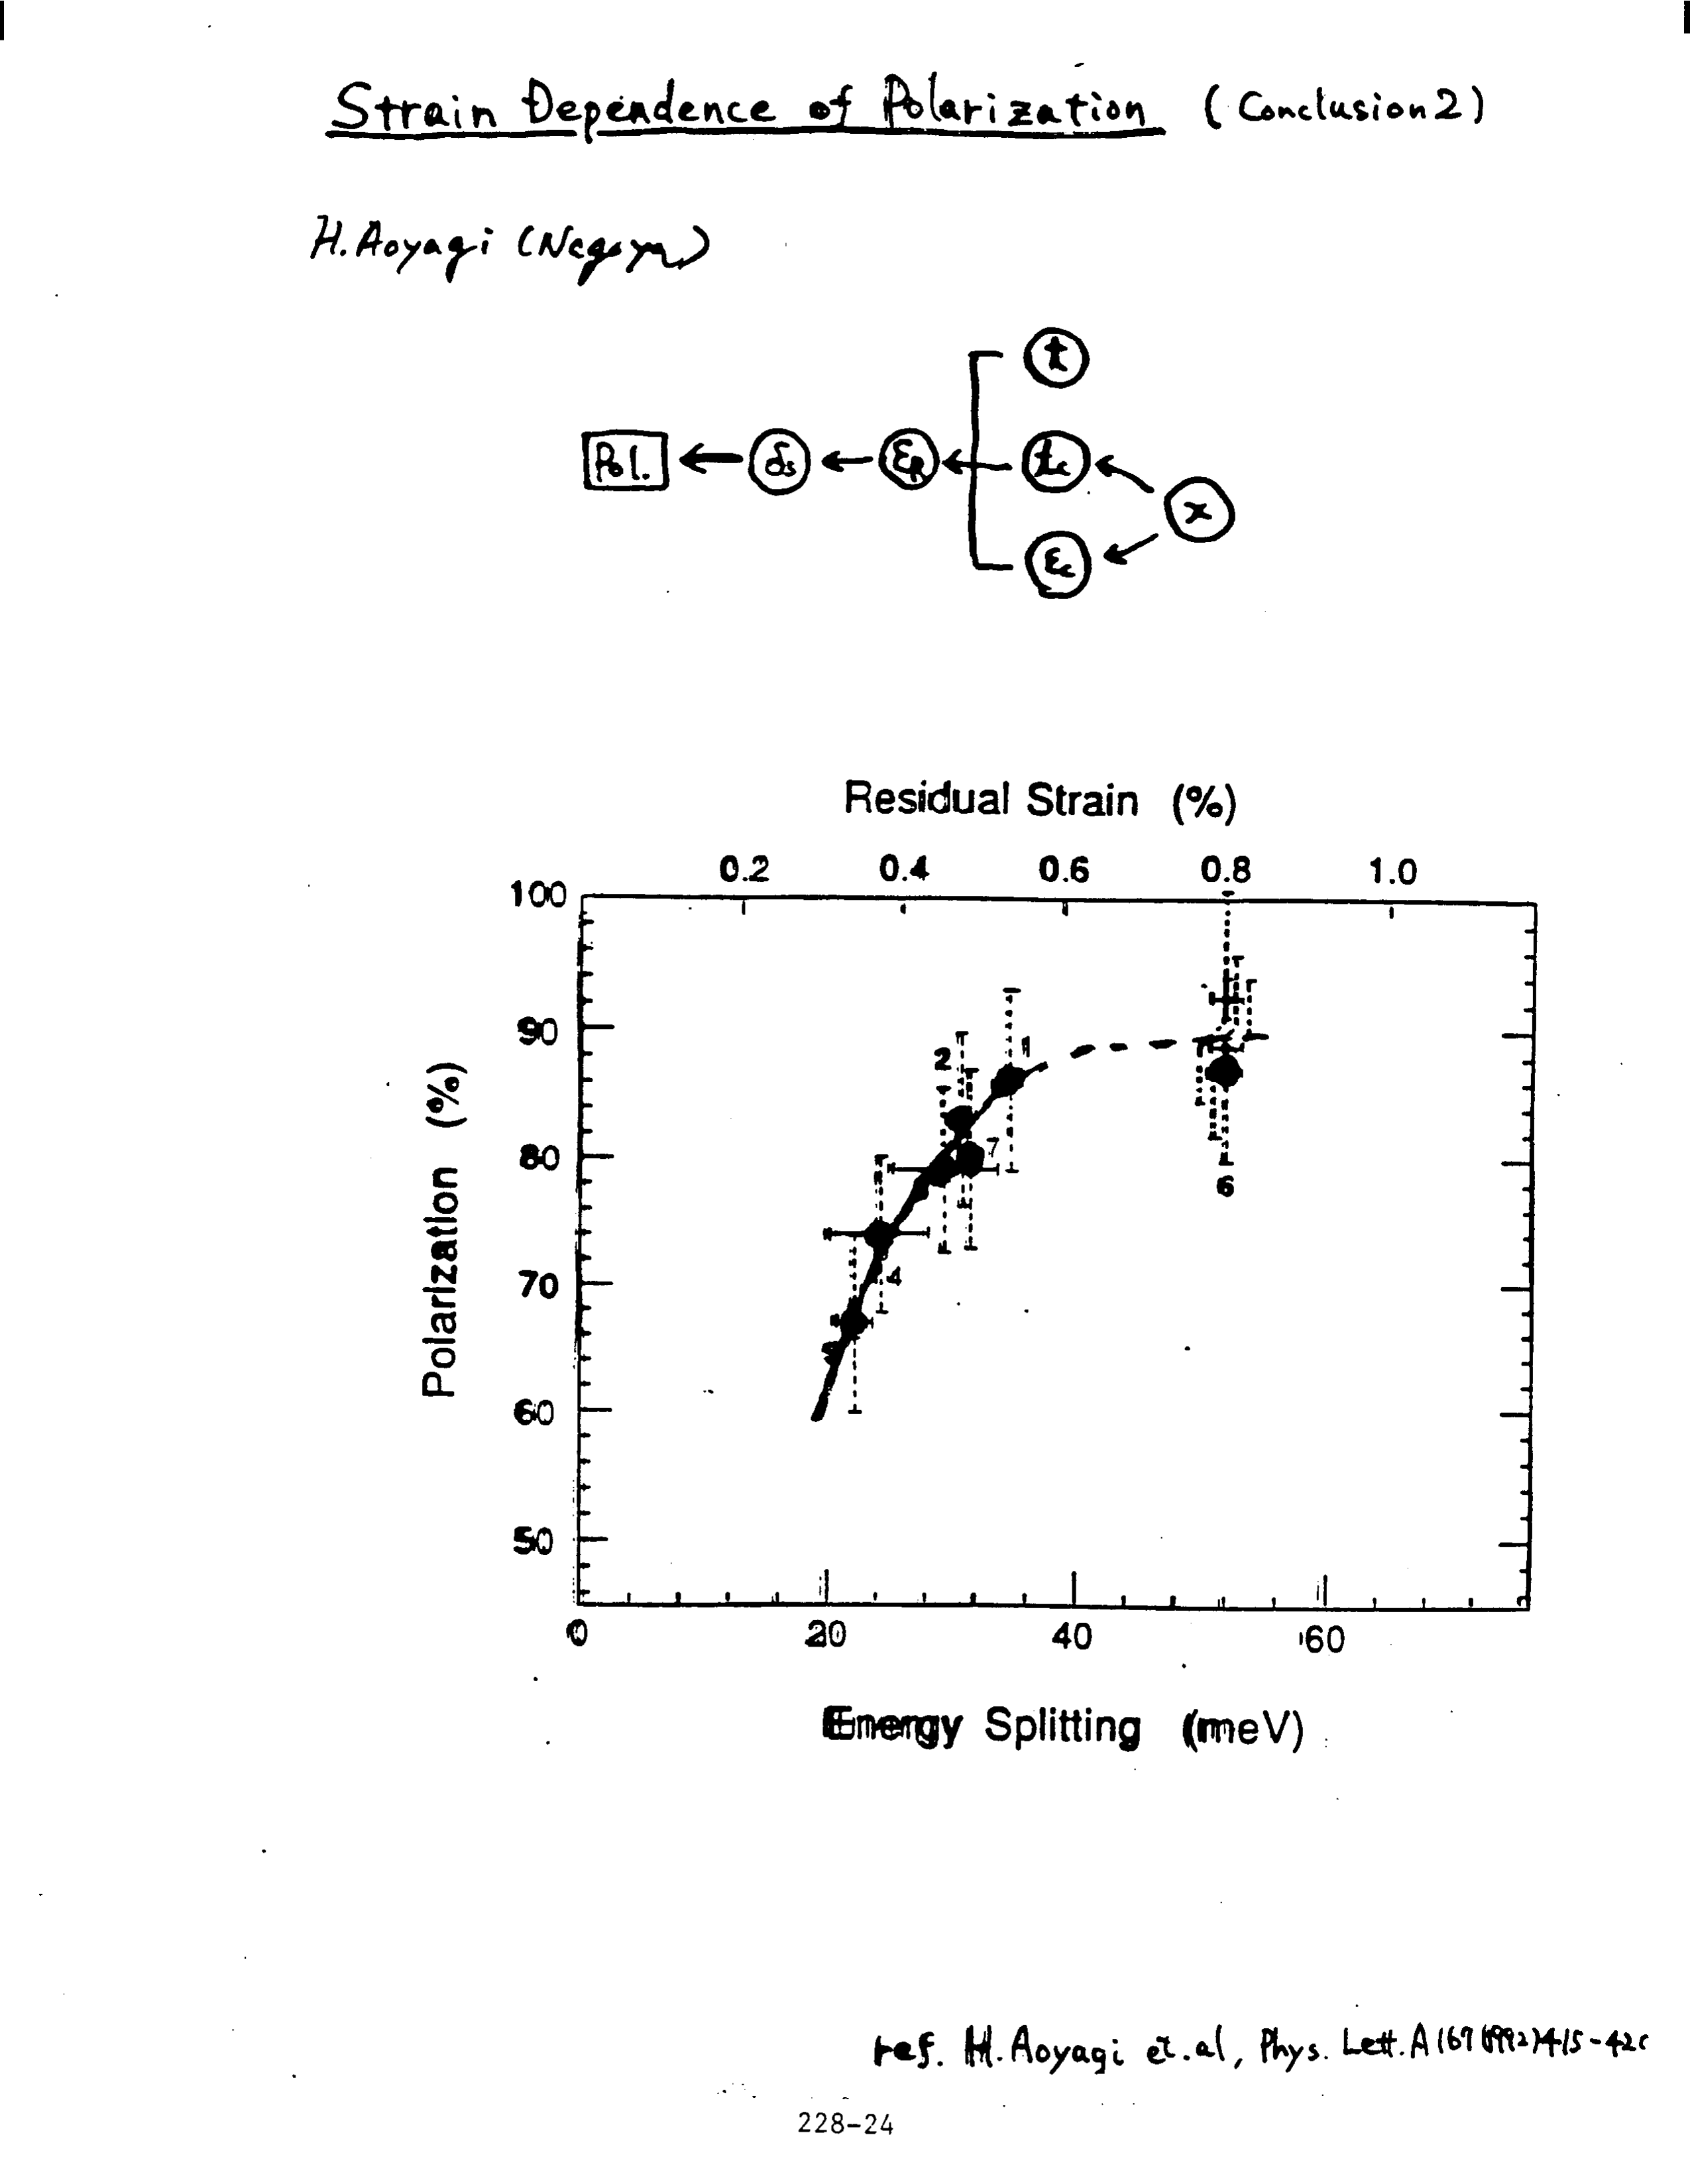 Strain Dependence of Polarization (Conclusion 2)
H. Aoyagi (Nagoya)
t
Pol. ← δs ← εR ← tc
x
εc
Residual Strain (%)
0.2 0.4 0.6 0.8 1.0
100
90
80
70
60
50
Polarization (%)
2
1
7
4
6
0 20 40 60
Energy Splitting (meV)
ref. H. Aoyagi et. al, Phys. Lett. A 167 (1992) 415-42
228-24